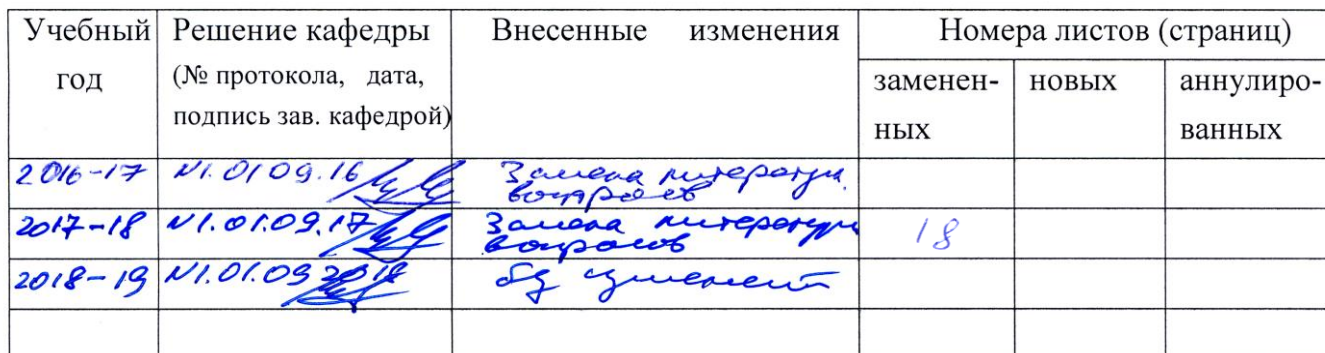 Учебный год
Решение кафедры
(№ протокола, дата,
подпись зав. кафедрой)
Внесенные изменения
Номера листов (страниц)
заменен-
ных
новых
аннулиро-
ванных
2016-17 №1.01.09.16 Замена литературы,
вопросов
2017-18 №1.01.09.17 Замена литературы 18
вопросов
2018-19 №1.01.09 2018 без изменений